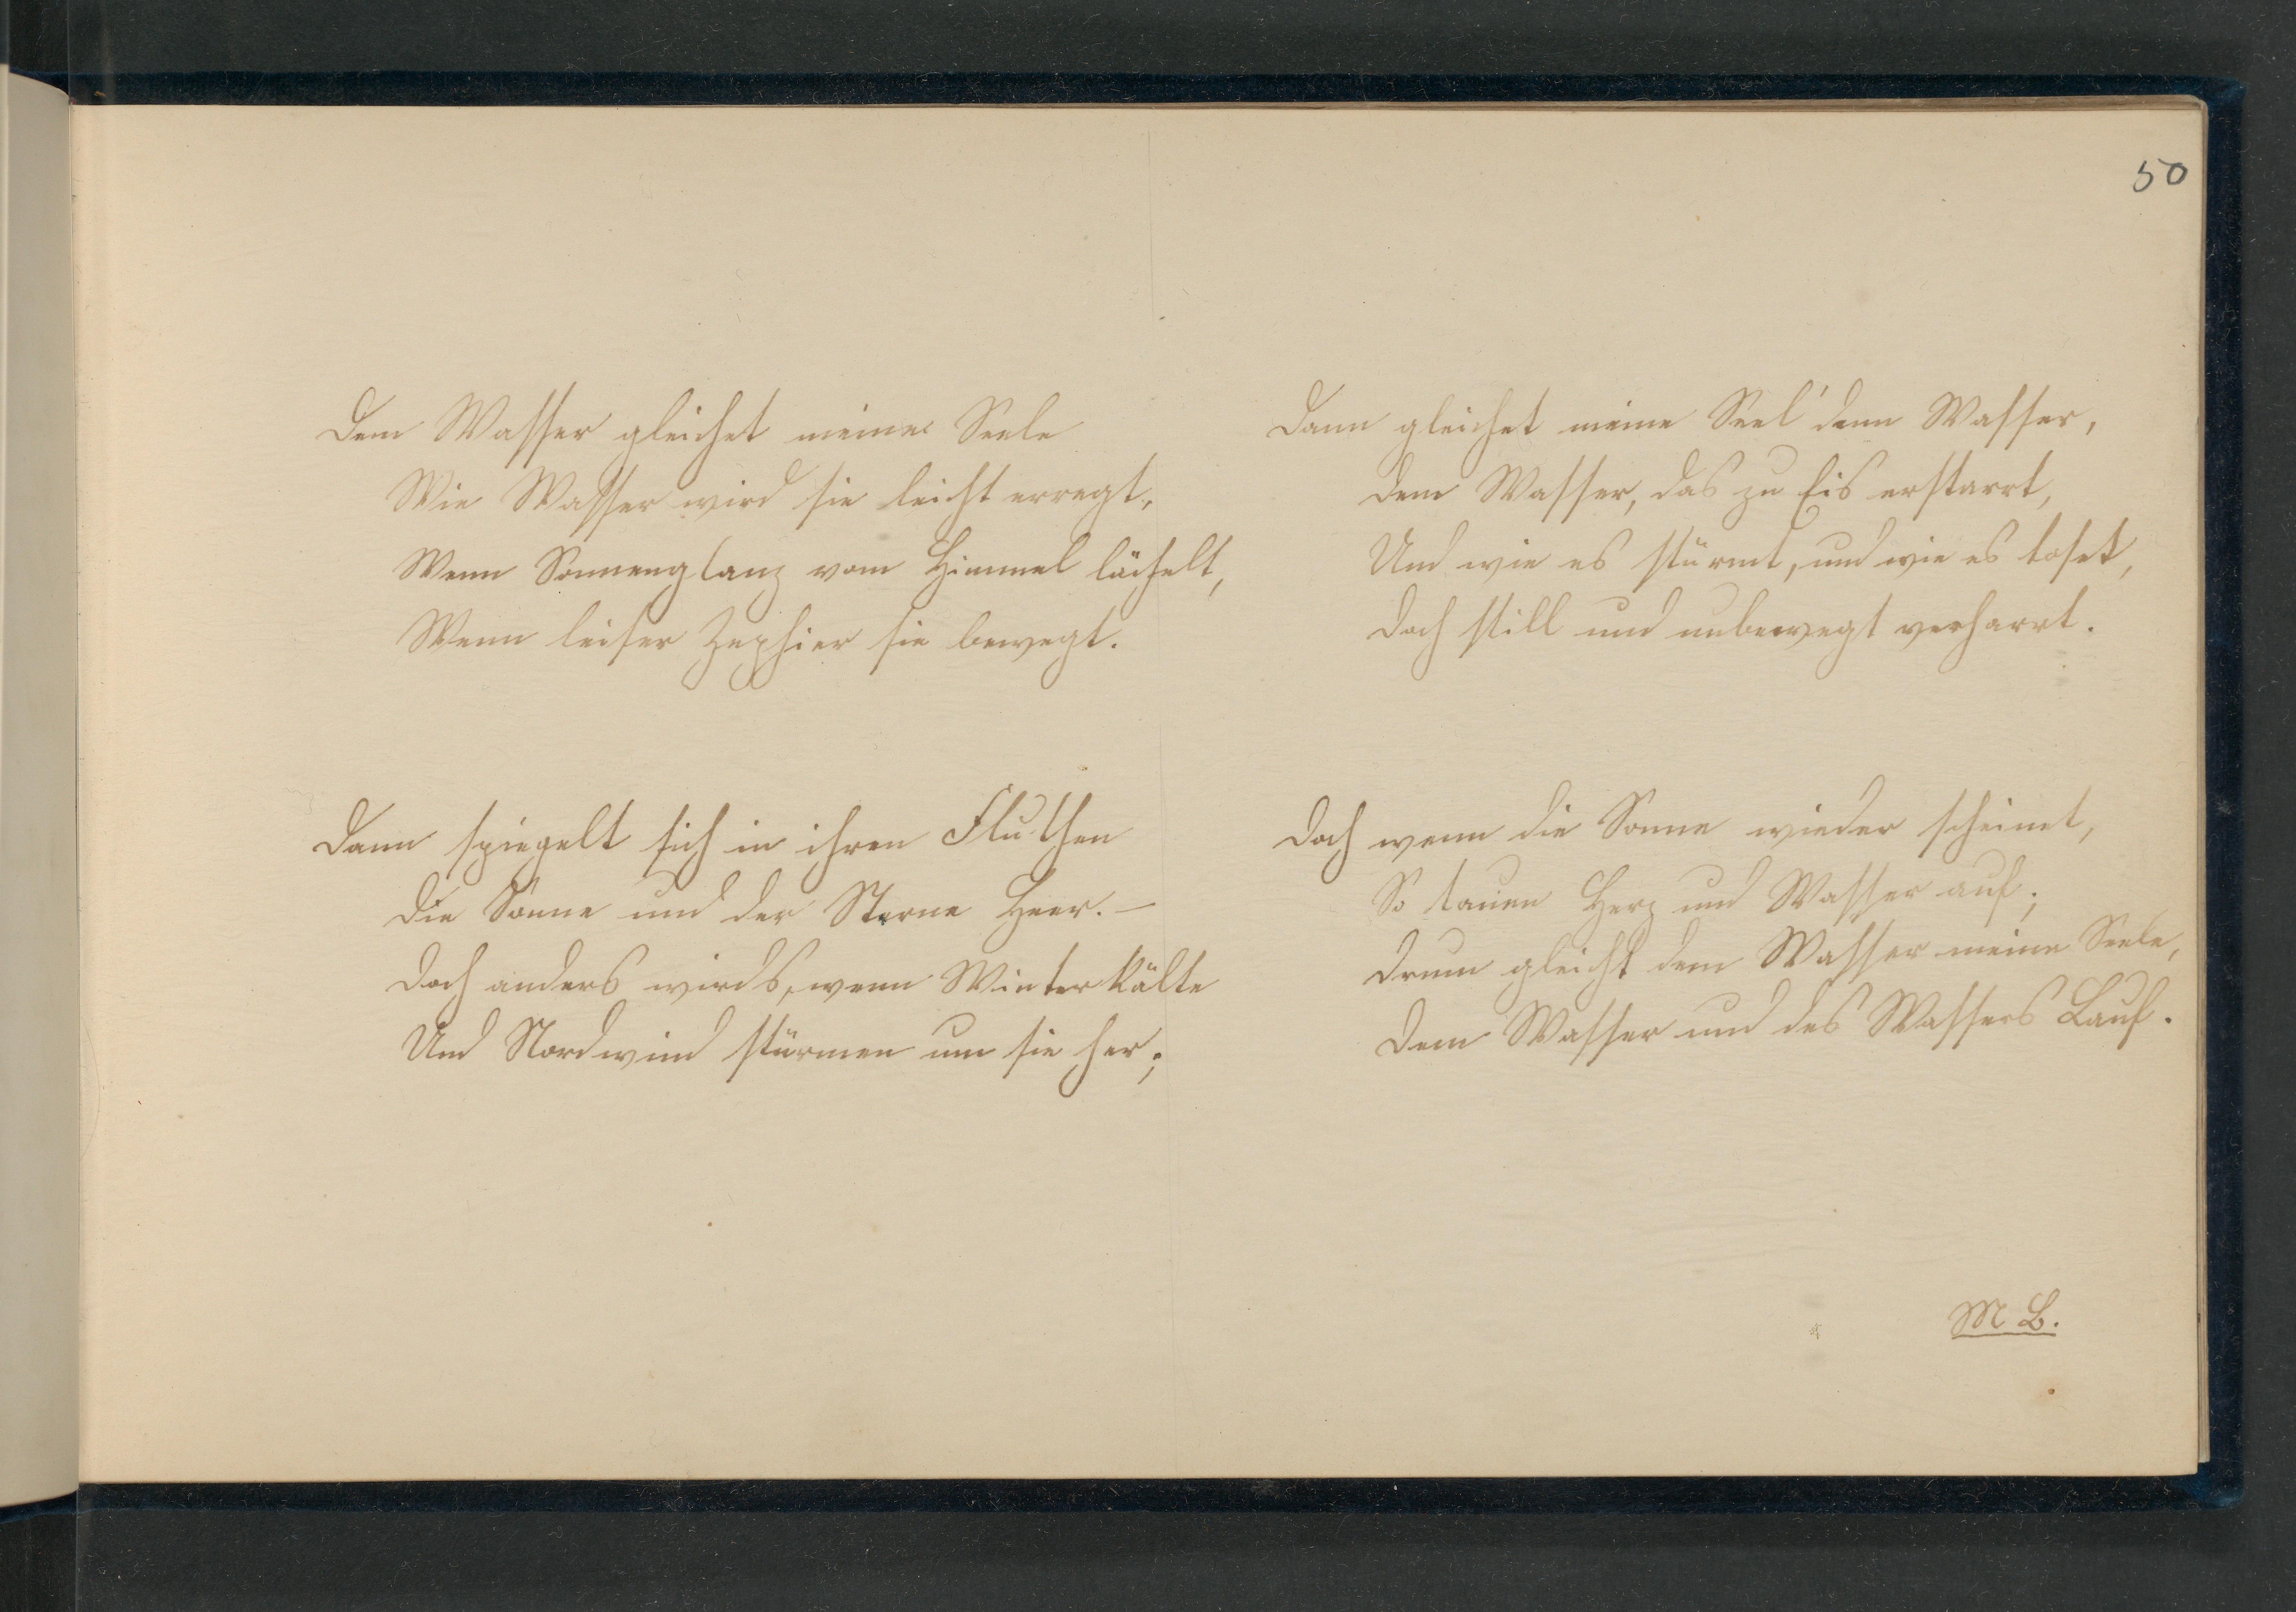 50
Dem Wasser gleichet meine Seele
Wie Wasser wird sie leicht erregt,
Wenn Sonnenglanz vom Himmel lächelt,
Wenn leiser Zephier sie bewegt.
Dann spiegelt sich in ihren Fluthen
Die Sonne und der Sterne Heer. —
Doch anders wirds, wenn Winterkälte
Und Nordwind stürmen um sie her;
Dann gleichet meine Seel' dem Wasser,
Dem Wasser, das zu Eis erstarrt,
Und wie es stürmt, und wie es toset,
Doch still und unbewegt verharrt.
Doch wenn die Sonne wieder scheinet,
So tauen Herz und Wasser auf;
Drum gleicht dem Wasser meine Seele,
Dem Wasser und des Wassers Lauf.
M B.